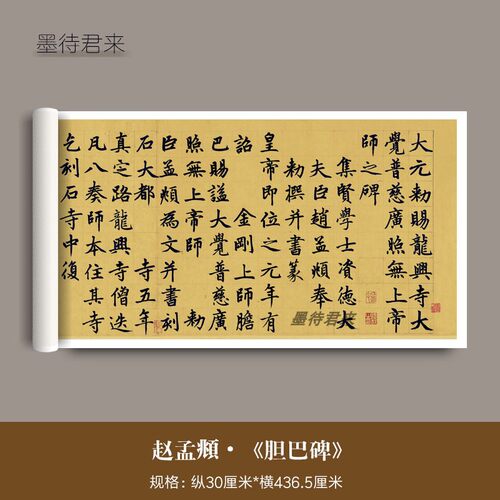 墨待君来
大元勅賜龍興寺大
覺普慈廣照無上帝
師之碑
集賢學士資德大
夫臣趙孟頫奉
勅撰并書篆
皇帝即位之元年有
詔 金剛上師膽
巴賜謚大覺普慈廣
照無上帝師 勅
臣孟頫為文并書刻
石大都 寺五年
真定路龍興寺僧迭
凡八奏師本住其寺
乞刻石寺中復
墨待君来
赵孟頫·《胆巴碑》
规格：纵30厘米*横436.5厘米